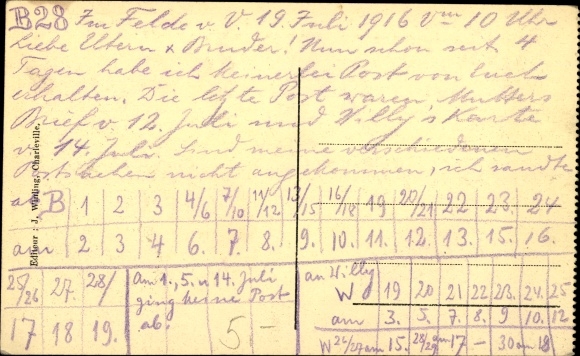 B28 Im Felde v. V. 19. Juli 1916 Vm 10 Uhr
Liebe Eltern & Bruder! Nun schon seit 4
Tagen habe ich keinerlei Post von Euch
erhalten. Die letzte Post waren Mutters
Brief v. 12. Juli und Willy's Karte
v. 14. Juli. Sind meine verschiedenen
Postsachen nicht angekommen, ich sandte
ab B 1 2 3 4/6 7/10 11/12 13/15 16/18 19 20/21 22 23. 24
am 2 3 4 6. 7. 8. 9. 10. 11. 12. 13. 15. 16.
25/26 27. 28/
17 18 19.
Am 1., 5. u 14. Juli
ging keine Post
ab.
5-
an Willy
W 19 20 21 22 23. 24. 25
am 3. 5. 7. 8. 9 10. 12
W 26/27 am 15. 28/29 am 17 – 30 am 18
Editeur : J. Winling, Charleville.